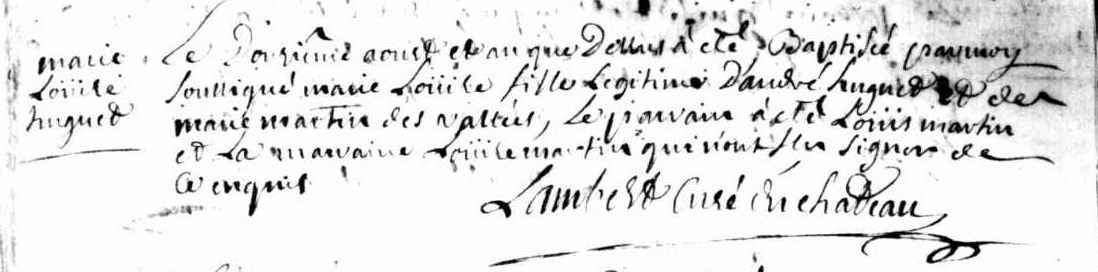 marie
Loüise
huguet
Le Douziême aoust et an que Dessus a eté Baptisée par moy
soussigné marie Loüise fille Legitime D'andré huguet et de
marie martin des vallées, Le parrain a eté Loüis martin
et La marraine Loüise martin qui n'ont sçu signer de
ce enquis
Lambert Curé du chateau